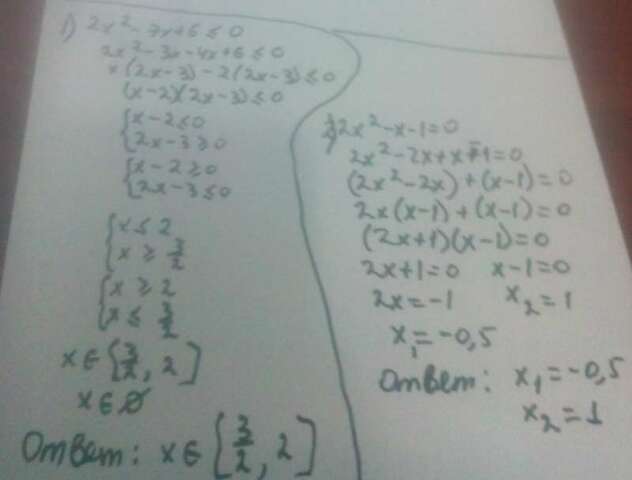 1) 2x² - 7x + 6 ≤ 0
2x² - 3x - 4x + 6 ≤ 0
x(2x - 3) - 2(2x - 3) ≤ 0
(x - 2)(2x - 3) ≤ 0
{x - 2 ≤ 0
2x - 3 ≥ 0
{x - 2 ≥ 0
2x - 3 ≤ 0
{x ≤ 2
x ≥ 3/2
{x ≥ 2
x ≤ 3/2
x ∈ [3/2, 2]
x ∈ Ø
Ответ: x ∈ [3/2, 2]
2) 2x² - x - 1 = 0
2x² - 2x + x - 1 = 0
(2x² - 2x) + (x - 1) = 0
2x(x - 1) + (x - 1) = 0
(2x + 1)(x - 1) = 0
2x + 1 = 0 x - 1 = 0
2x = -1 x₂ = 1
x₁ = -0,5
Ответ: x₁ = -0,5
x₂ = 1